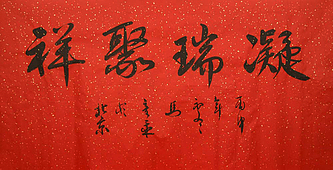 凝瑞聚祥
丙申
年
馬
北京